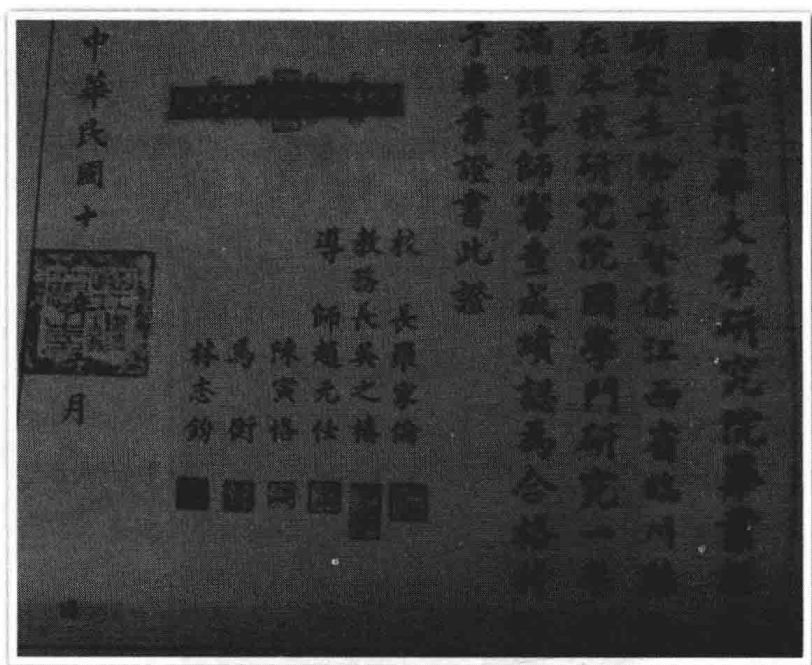 國立清華大學研究院畢業
研究生 係江西省臨川
在本校研究院國學門研究一
滿經導師審查成績認為合格
予畢業證書此證
校長羅家倫
教務長吳之椿
導師趙元任
陳寅恪
馬衡
林志鈞
中華民國十 年 月